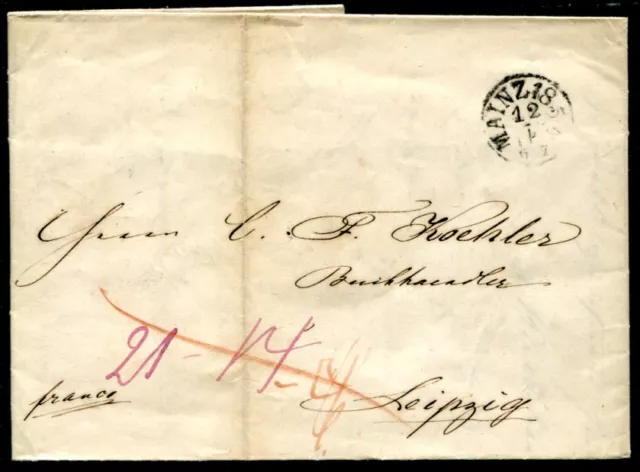 MAINZ 18
12
Herrn C. F. Koehler
Buchhaendler
21 - 14
franco
Leipzig